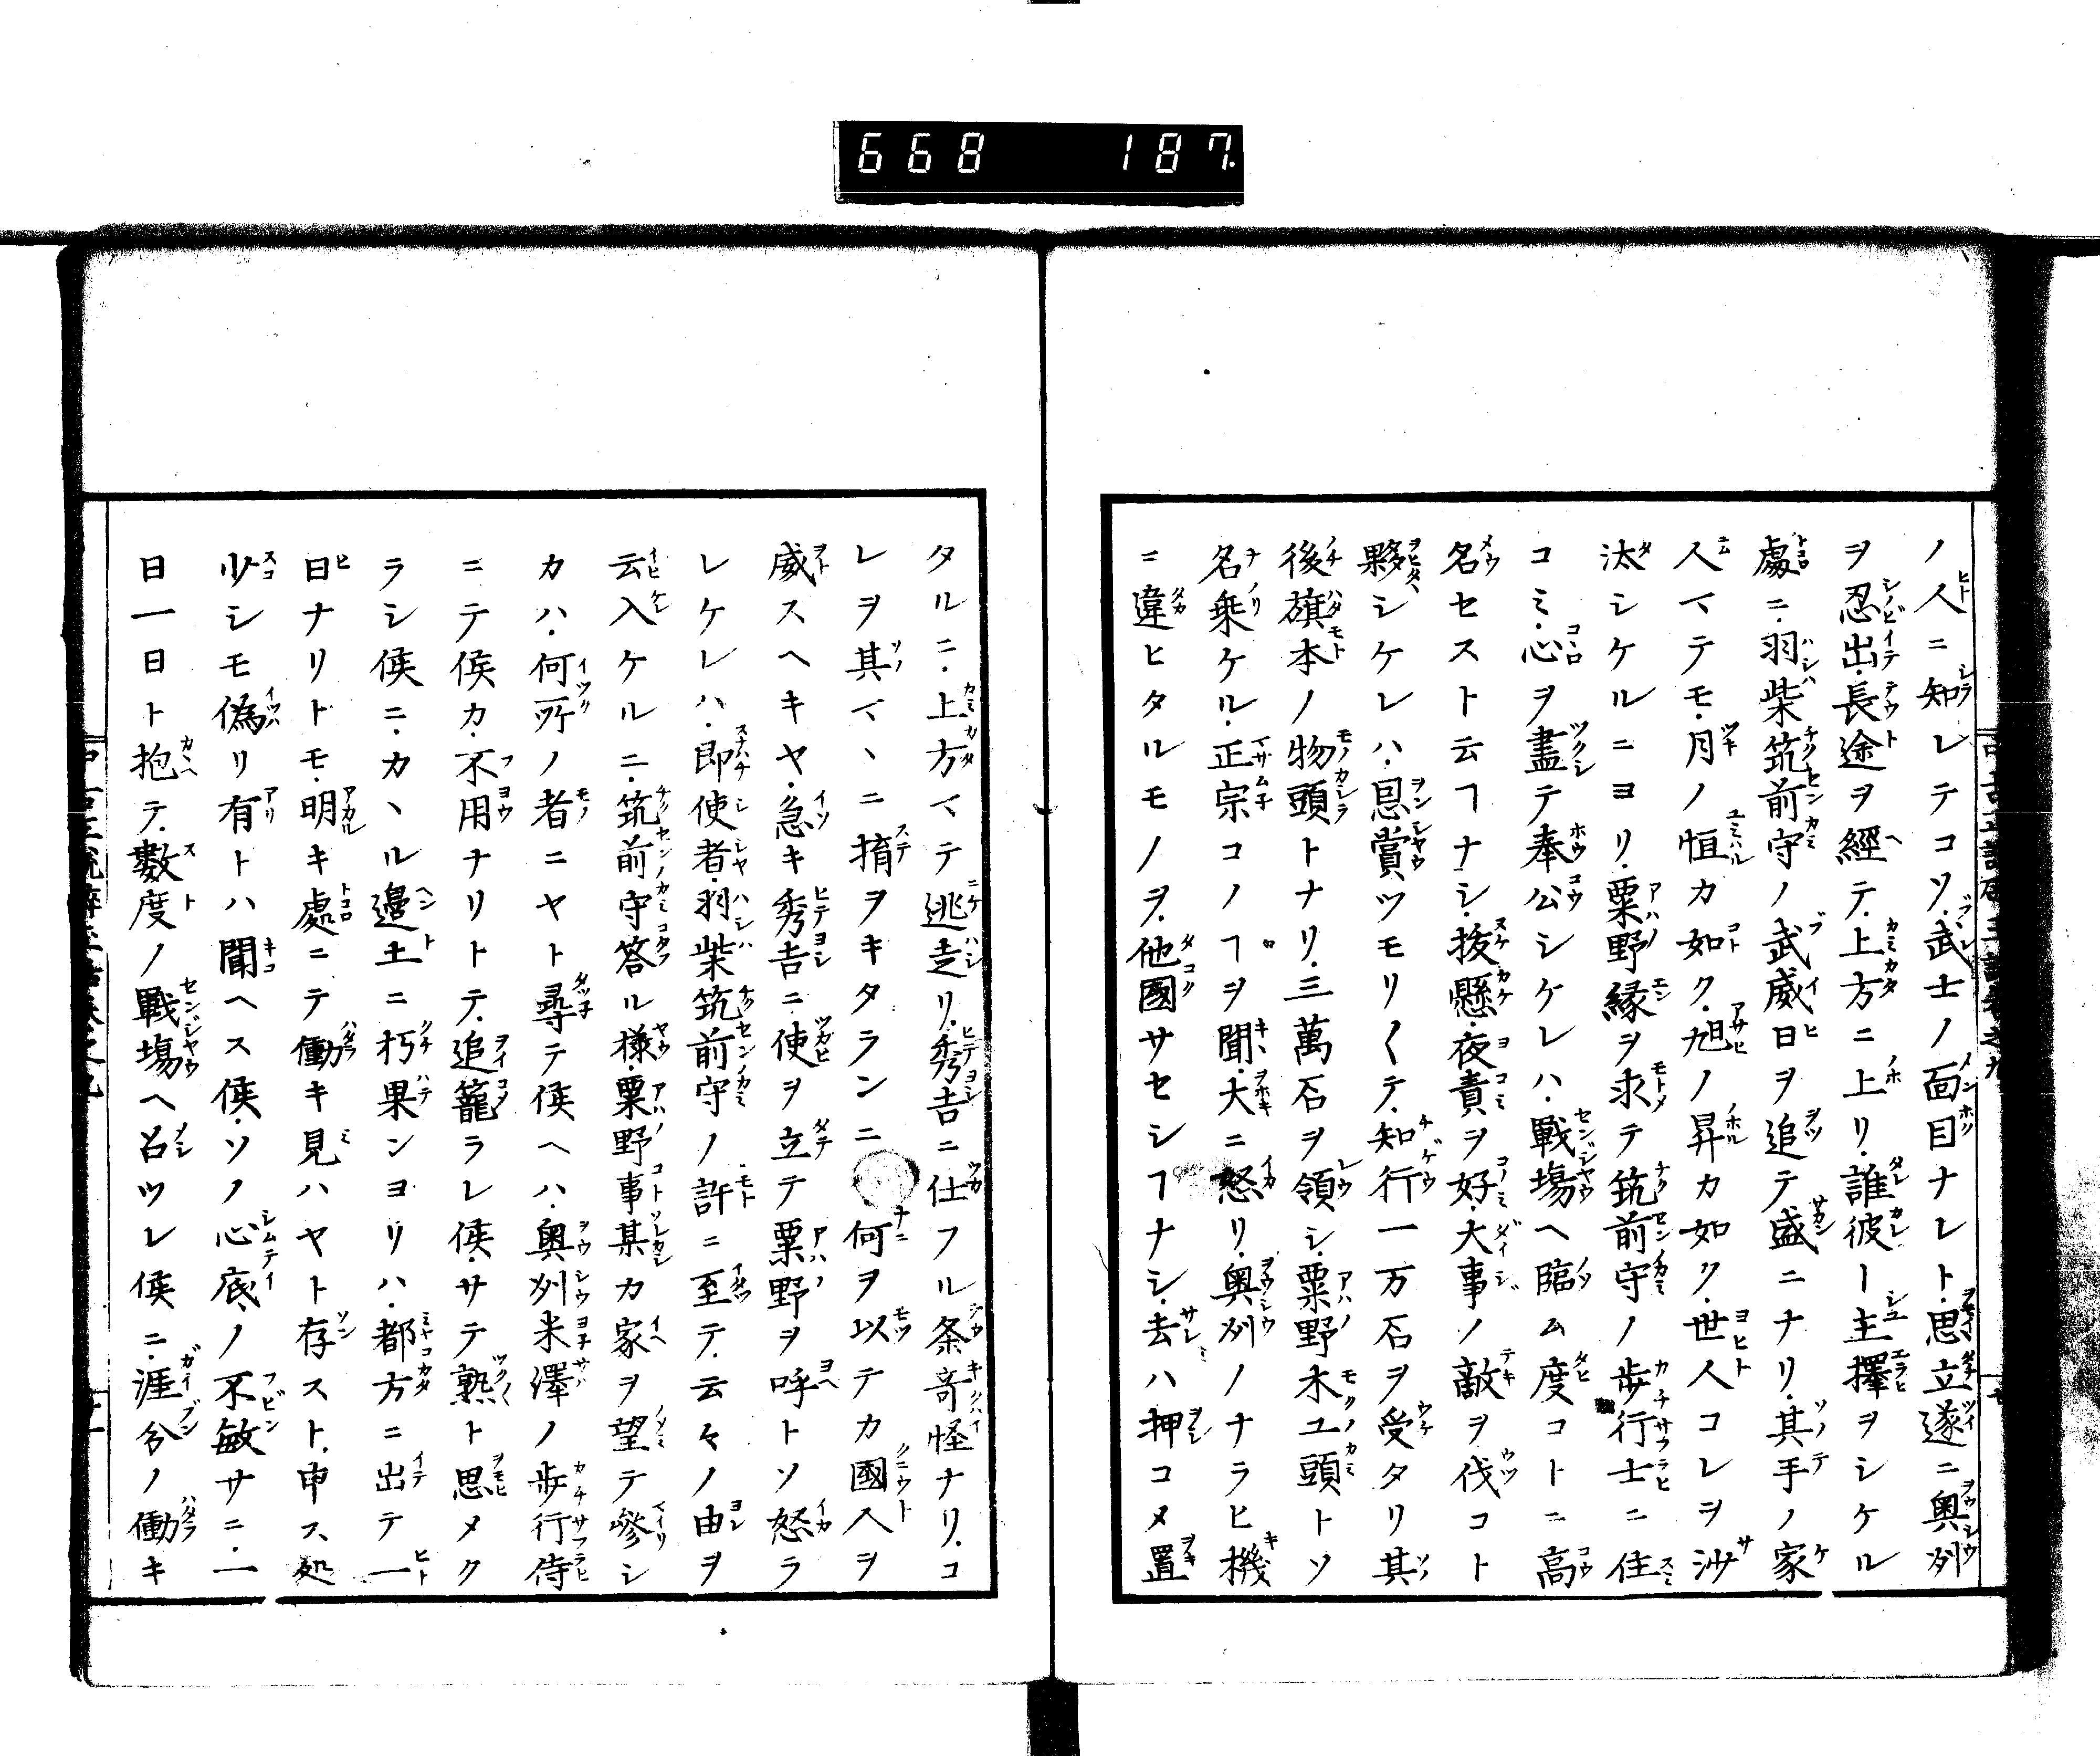 668 187
ノ人ニ知レテコソ武士ノ面目ナレト思立遂ニ奥刕
ヲ忍出長途ヲ經テ上方ニ上リ誰彼ー主擇ヲシケル
處ニ羽柴筑前守ノ武威日ヲ追テ盛ニナリ其手ノ家
人マテモ月ノ恒カ如ク旭ノ昇カ如ク世人コレヲ沙
汰シケルニヨリ粟野縁ヲ求テ筑前守ノ歩行士ニ住
コミ心ヲ盡テ奉公シケレハ戰塲ヘ臨ム度コトニ高
名セスト云ヿナシ拔懸夜責ヲ好大事ノ敵ヲ伐コト
夥シケレハ恩賞ツモリ〱テ知行一万石ヲ受タリ其
後旗本ノ物頭トナリ三萬石ヲ領シ粟野木工頭トソ
名乗ケル正宗コノヿヲ聞大ニ怒リ奥刕ノナラヒ機
ニ違ヒタルモノヲ他國サセシヿナシ去ハ押コメ置
タルニ上方マテ迯走リ秀吉ニ仕フル条奇怪ナリコ
レヲ其マヽニ捐ヲキタランニ何ヲ以テカ國人ヲ
威スヘキヤ急キ秀吉ニ使ヲ立テ粟野ヲ呼トソ怒ラ
レケレハ即使者羽柴筑前守ノ許ニ至テ云々ノ由ヲ
云入ケルニ筑前守答ル様粟野事某カ家ヲ望テ參シ
カハ何所ノ者ニヤト尋テ候ヘハ奥刕米澤ノ歩行侍
ニテ候カ不用ナリトテ追籠ラレ候サテ熟ト思メク
ラシ候ニカヽル邊土ニ朽果ンヨリハ都方ニ出テ一
日ナリトモ明キ處ニテ働キ見ハヤト存スト申ス処
少シモ偽リ有トハ聞ヘス候ソノ心底ノ不敏サニ一
日一日ト抱テ數度ノ戰塲ヘ召ツレ候ニ涯分ノ働キ